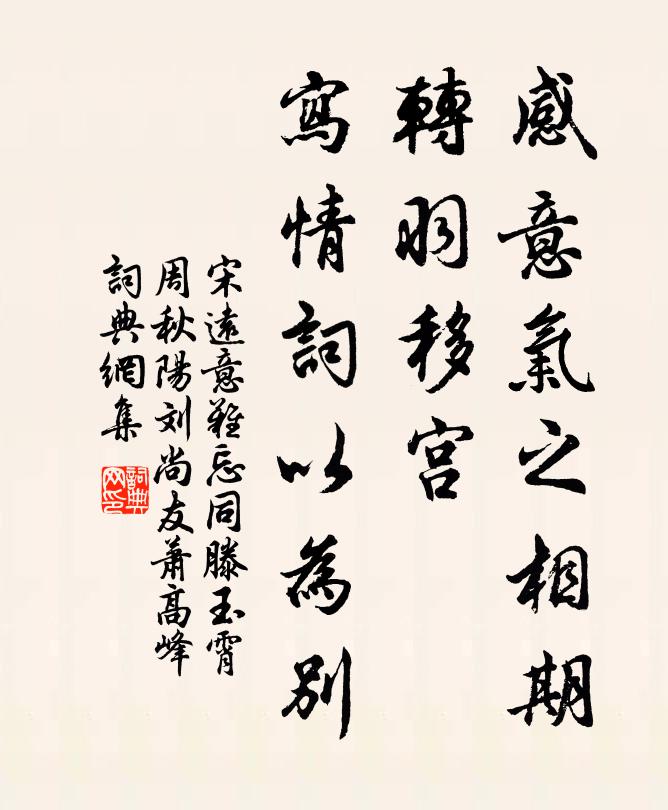 感意氣之相期
轉羽移宮
寫情詞以為別
宋遠意難忘同滕玉霄
周秋陽刘尚友蕭高峰
詞典網集
詞典
网印